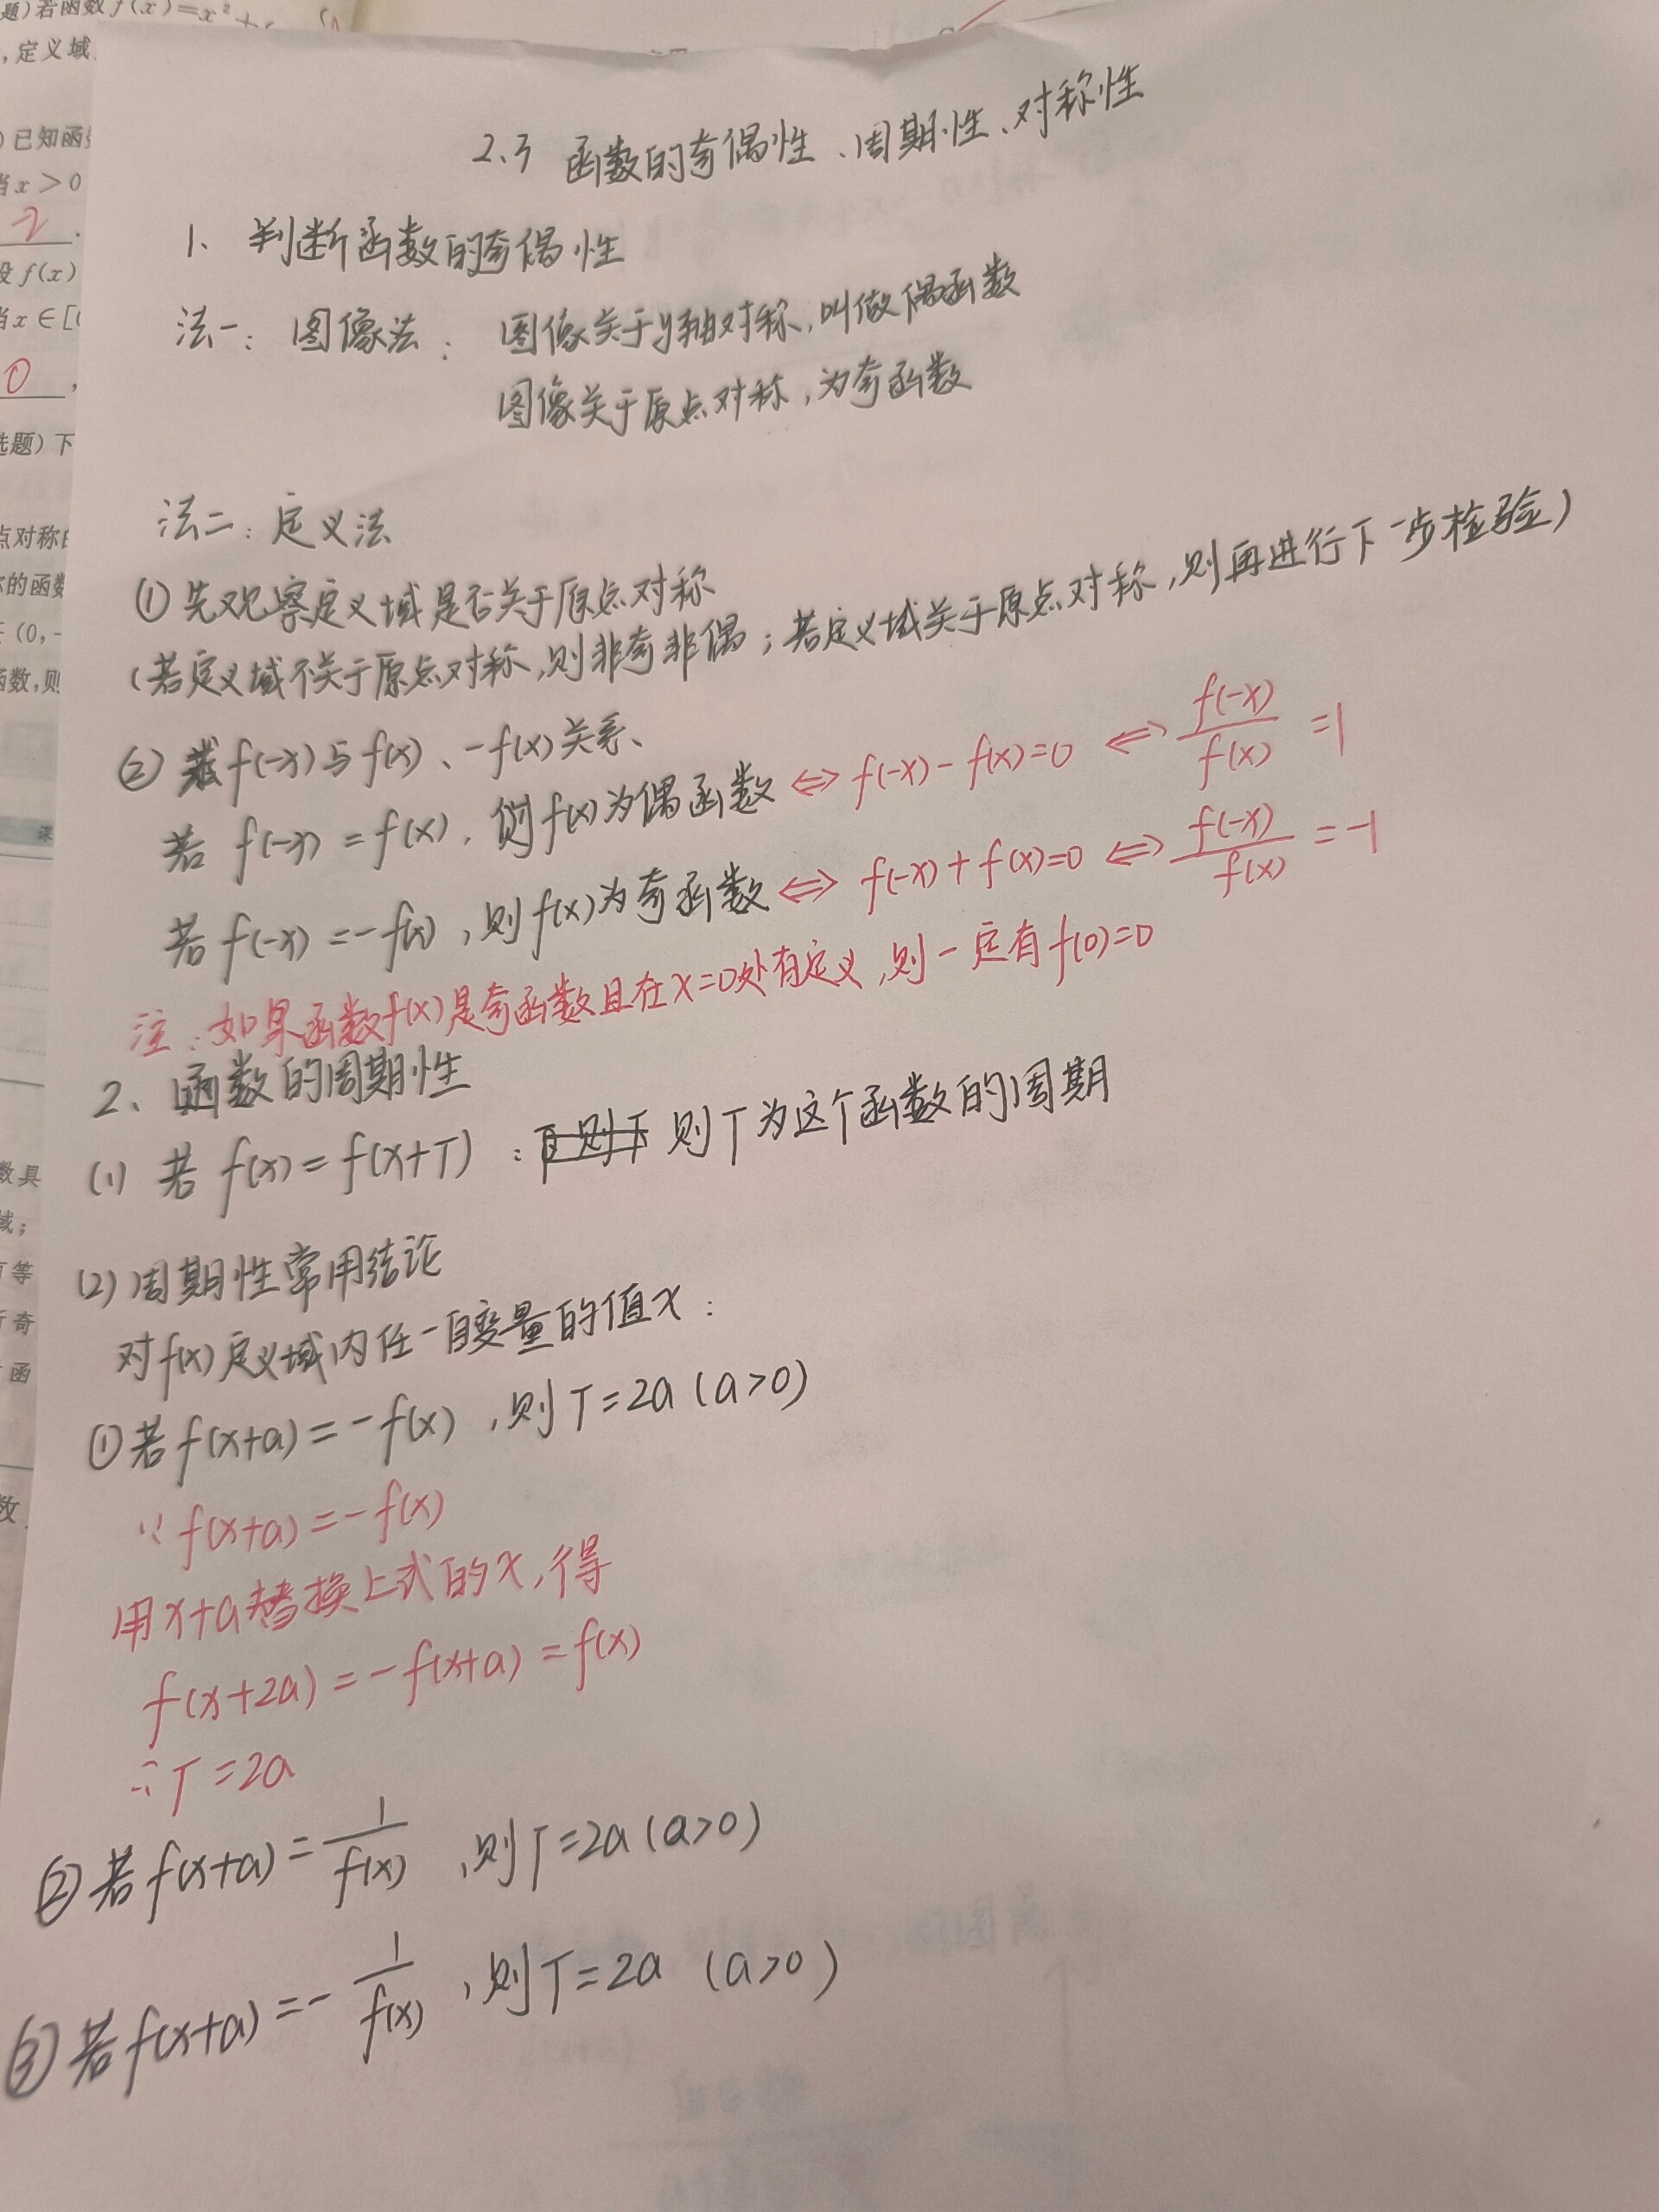 题)若函数f(x)=x²+
,定义域
2.3 函数的奇偶性、周期性、对称性
)已知函
当x>0
-2
1、判断函数的奇偶性
设f(x)
法一:图像法:图像关于y轴对称,叫做偶函数
当x∈[
0
图像关于原点对称,为奇函数
选题)下
法二:定义法
点对称
①先观察定义域是否关于原点对称
的函数
(若定义域不关于原点对称,则非奇非偶;若定义域关于原点对称,则再进行下一步检验)
(0,
函数,则
②求f(-x)与f(x)、-f(x)关系、
若 f(-x)=f(x),则f(x)为偶函数⇔f(-x)-f(x)=0⇔f(-x)/f(x)=1
若 f(-x)=-f(x),则f(x)为奇函数⇔f(-x)+f(x)=0⇔f(-x)/f(x)=-1
注:如果函数f(x)是奇函数且在x=0处有定义,则一定有f(0)=0
2、函数的周期性
(1) 若 f(x)=f(x+T):则T为这个函数的周期
数具
域;
(2)周期性常用结论
等
奇
对f(x)定义域内任一自变量的值x:
函
①若f(x+a)=-f(x),则T=2a(a>0)
数
∵f(x+a)=-f(x)
用x+a替换上式的x,得
f(x+2a)=-f(x+a)=f(x)
∴T=2a
②若f(x+a)=1/f(x),则T=2a(a>0)
③若f(x+a)=-1/f(x),则T=2a (a>0)